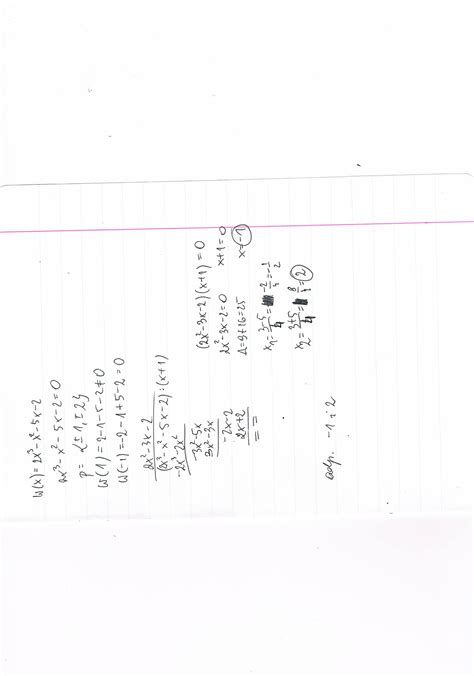 W(x) = 2x³-x²-5x-2
2x³-x²-5x-2=0
p= {±1, ±2}
W(1)=2-1-5-2≠0
W(-1)=-2-1+5-2=0
2x²-3x-2
(2x³-x²-5x-2):(x+1)
-2x³-2x²
-3x²-5x
3x²-3x
-2x-2
2x+2
= =
(2x²-3x-2)(x+1)=0
2x²-3x-2=0 x+1=0
Δ=9+16=25 x=-1
x₁=3-5/4=-2/4=-1/2
x₂=3+5/4=8/4=2
odp. -1 i 2